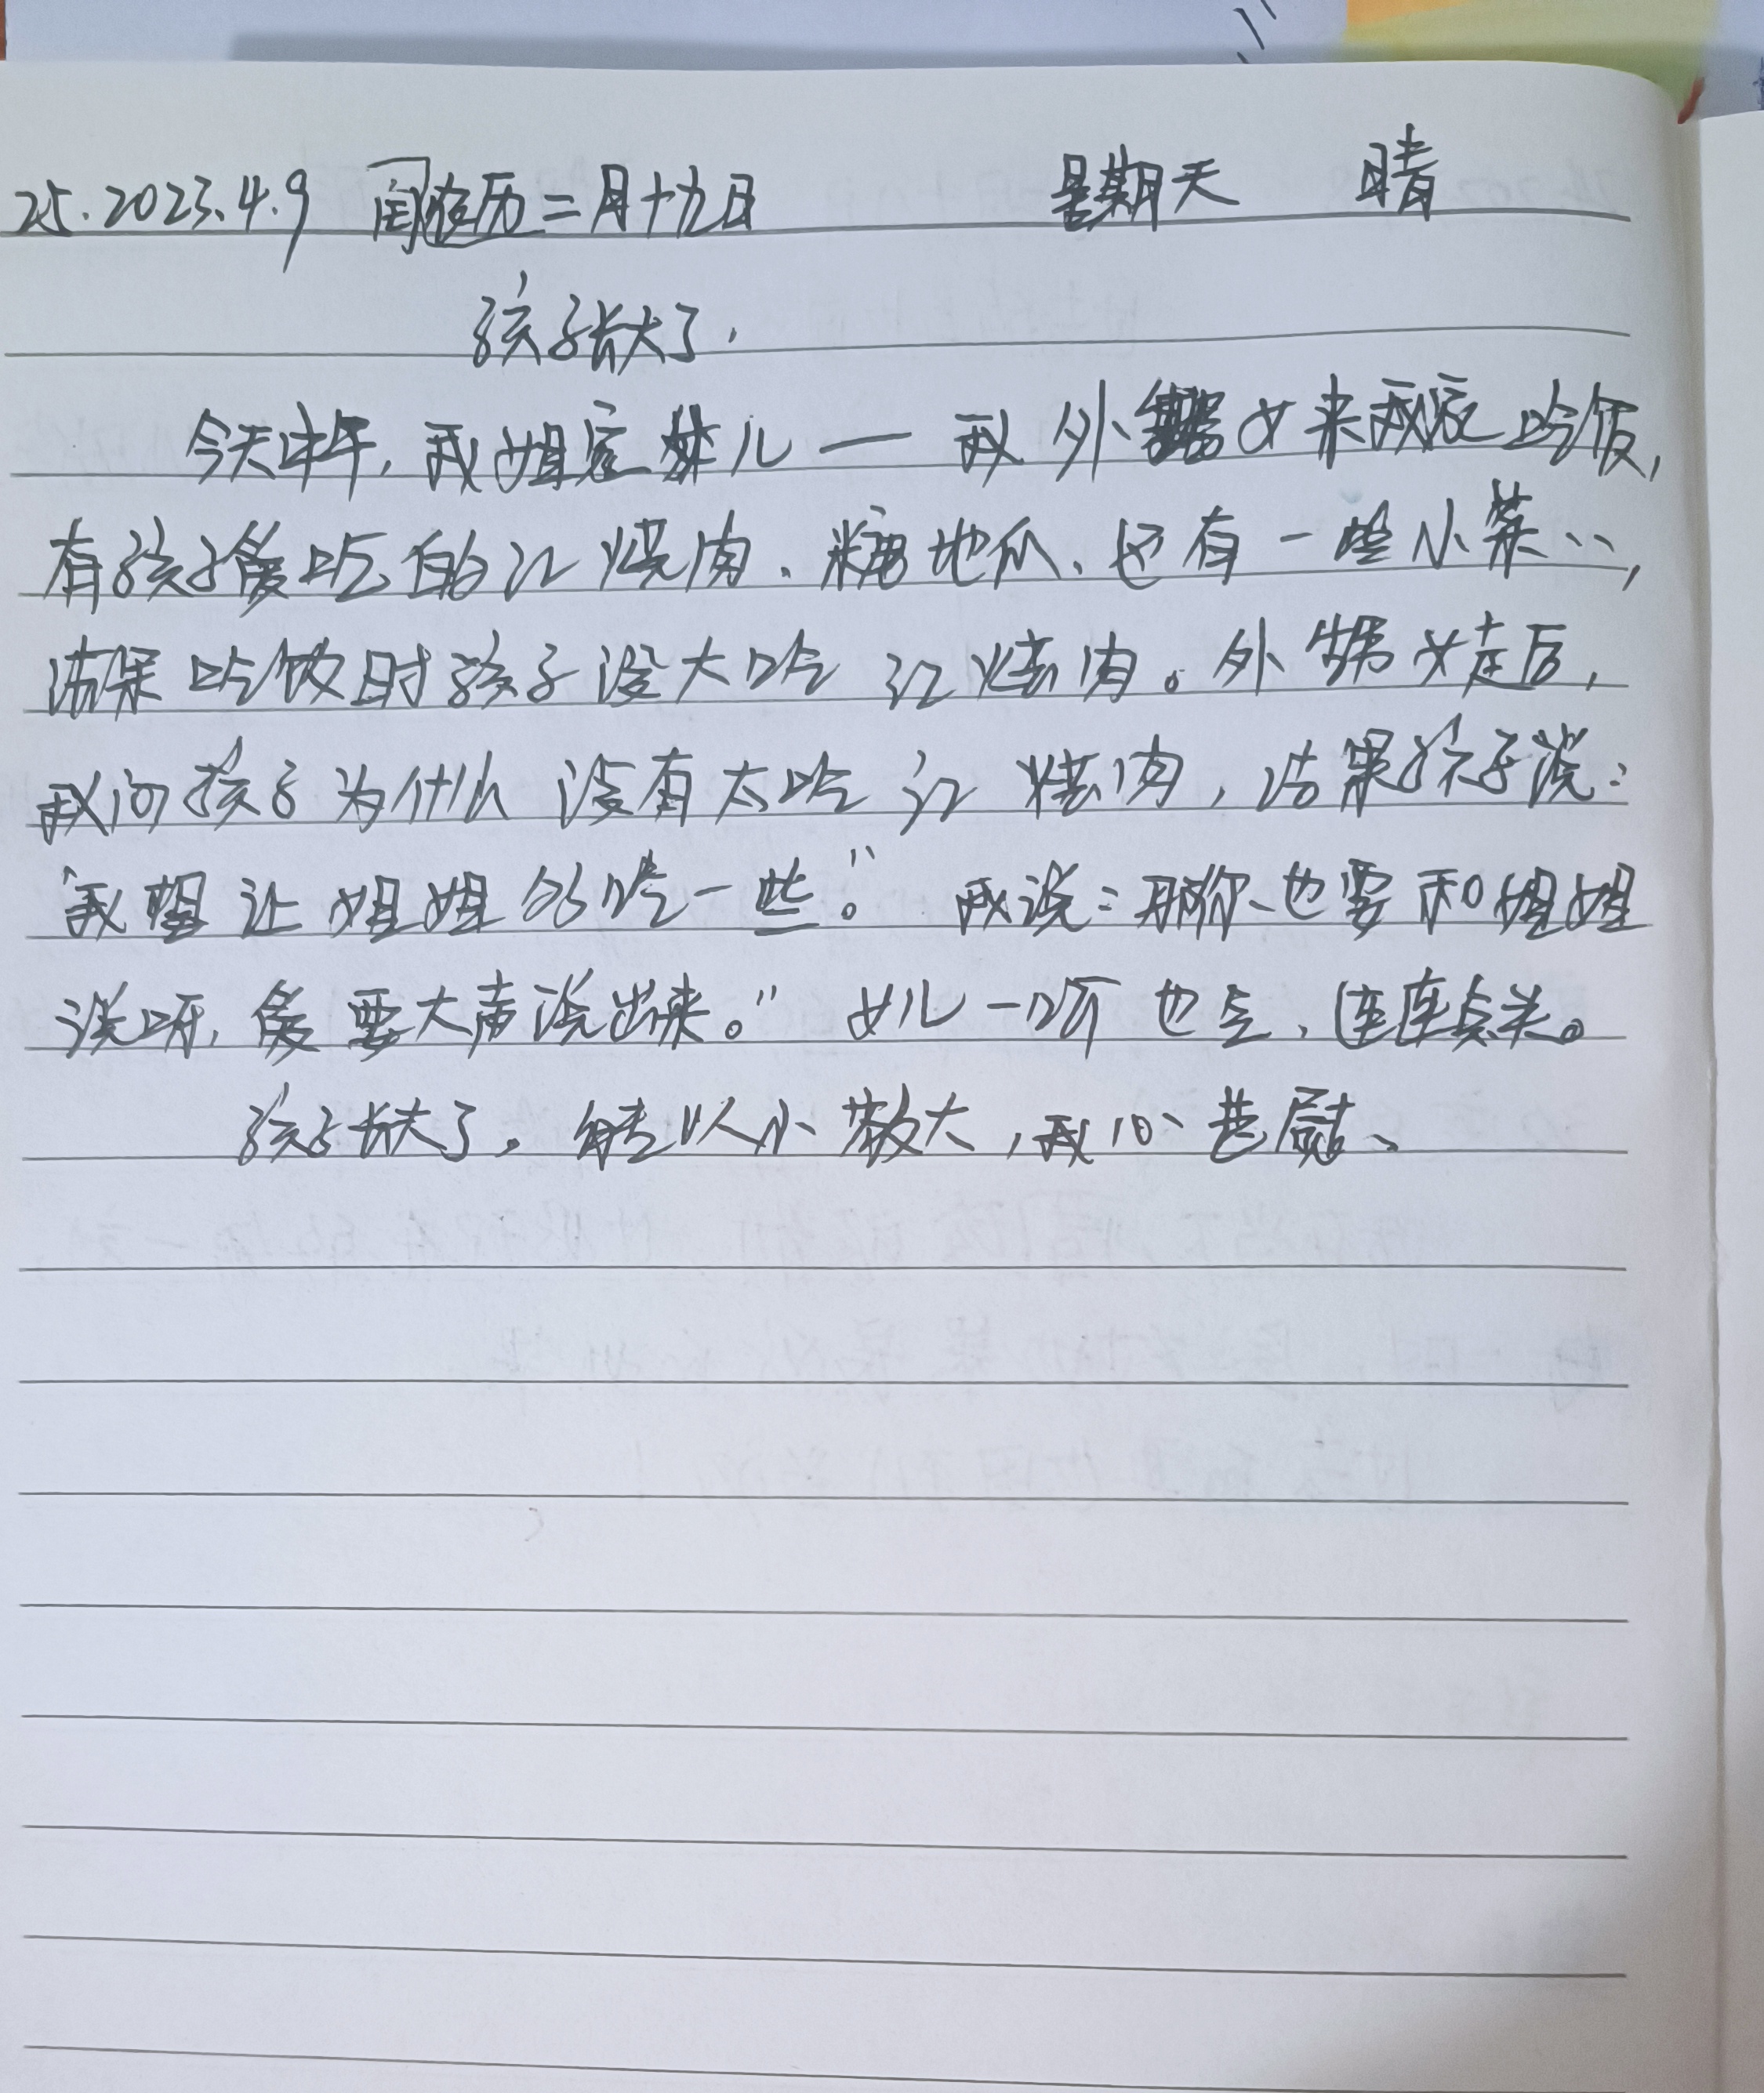 25.2023.4.9 闰庄历二月十九日 星期天 晴
孩子长大了.
今天中午,我姐家女儿一我外甥女来我家吃饭,
有孩子爱吃的红烧肉、糖地瓜、还有一些小菜…,
结果吃饭时孩子没大吃红烧肉。外甥女走后,
我问孩子为什么没有大吃红烧肉,结果孩子说:
"我想让姐姐多吃一些。"我说:那你也要和姐姐
说呀,爱要大声说出来。"女儿一听也是,连连点头。
孩子长大了。能以小教大,我心甚慰、